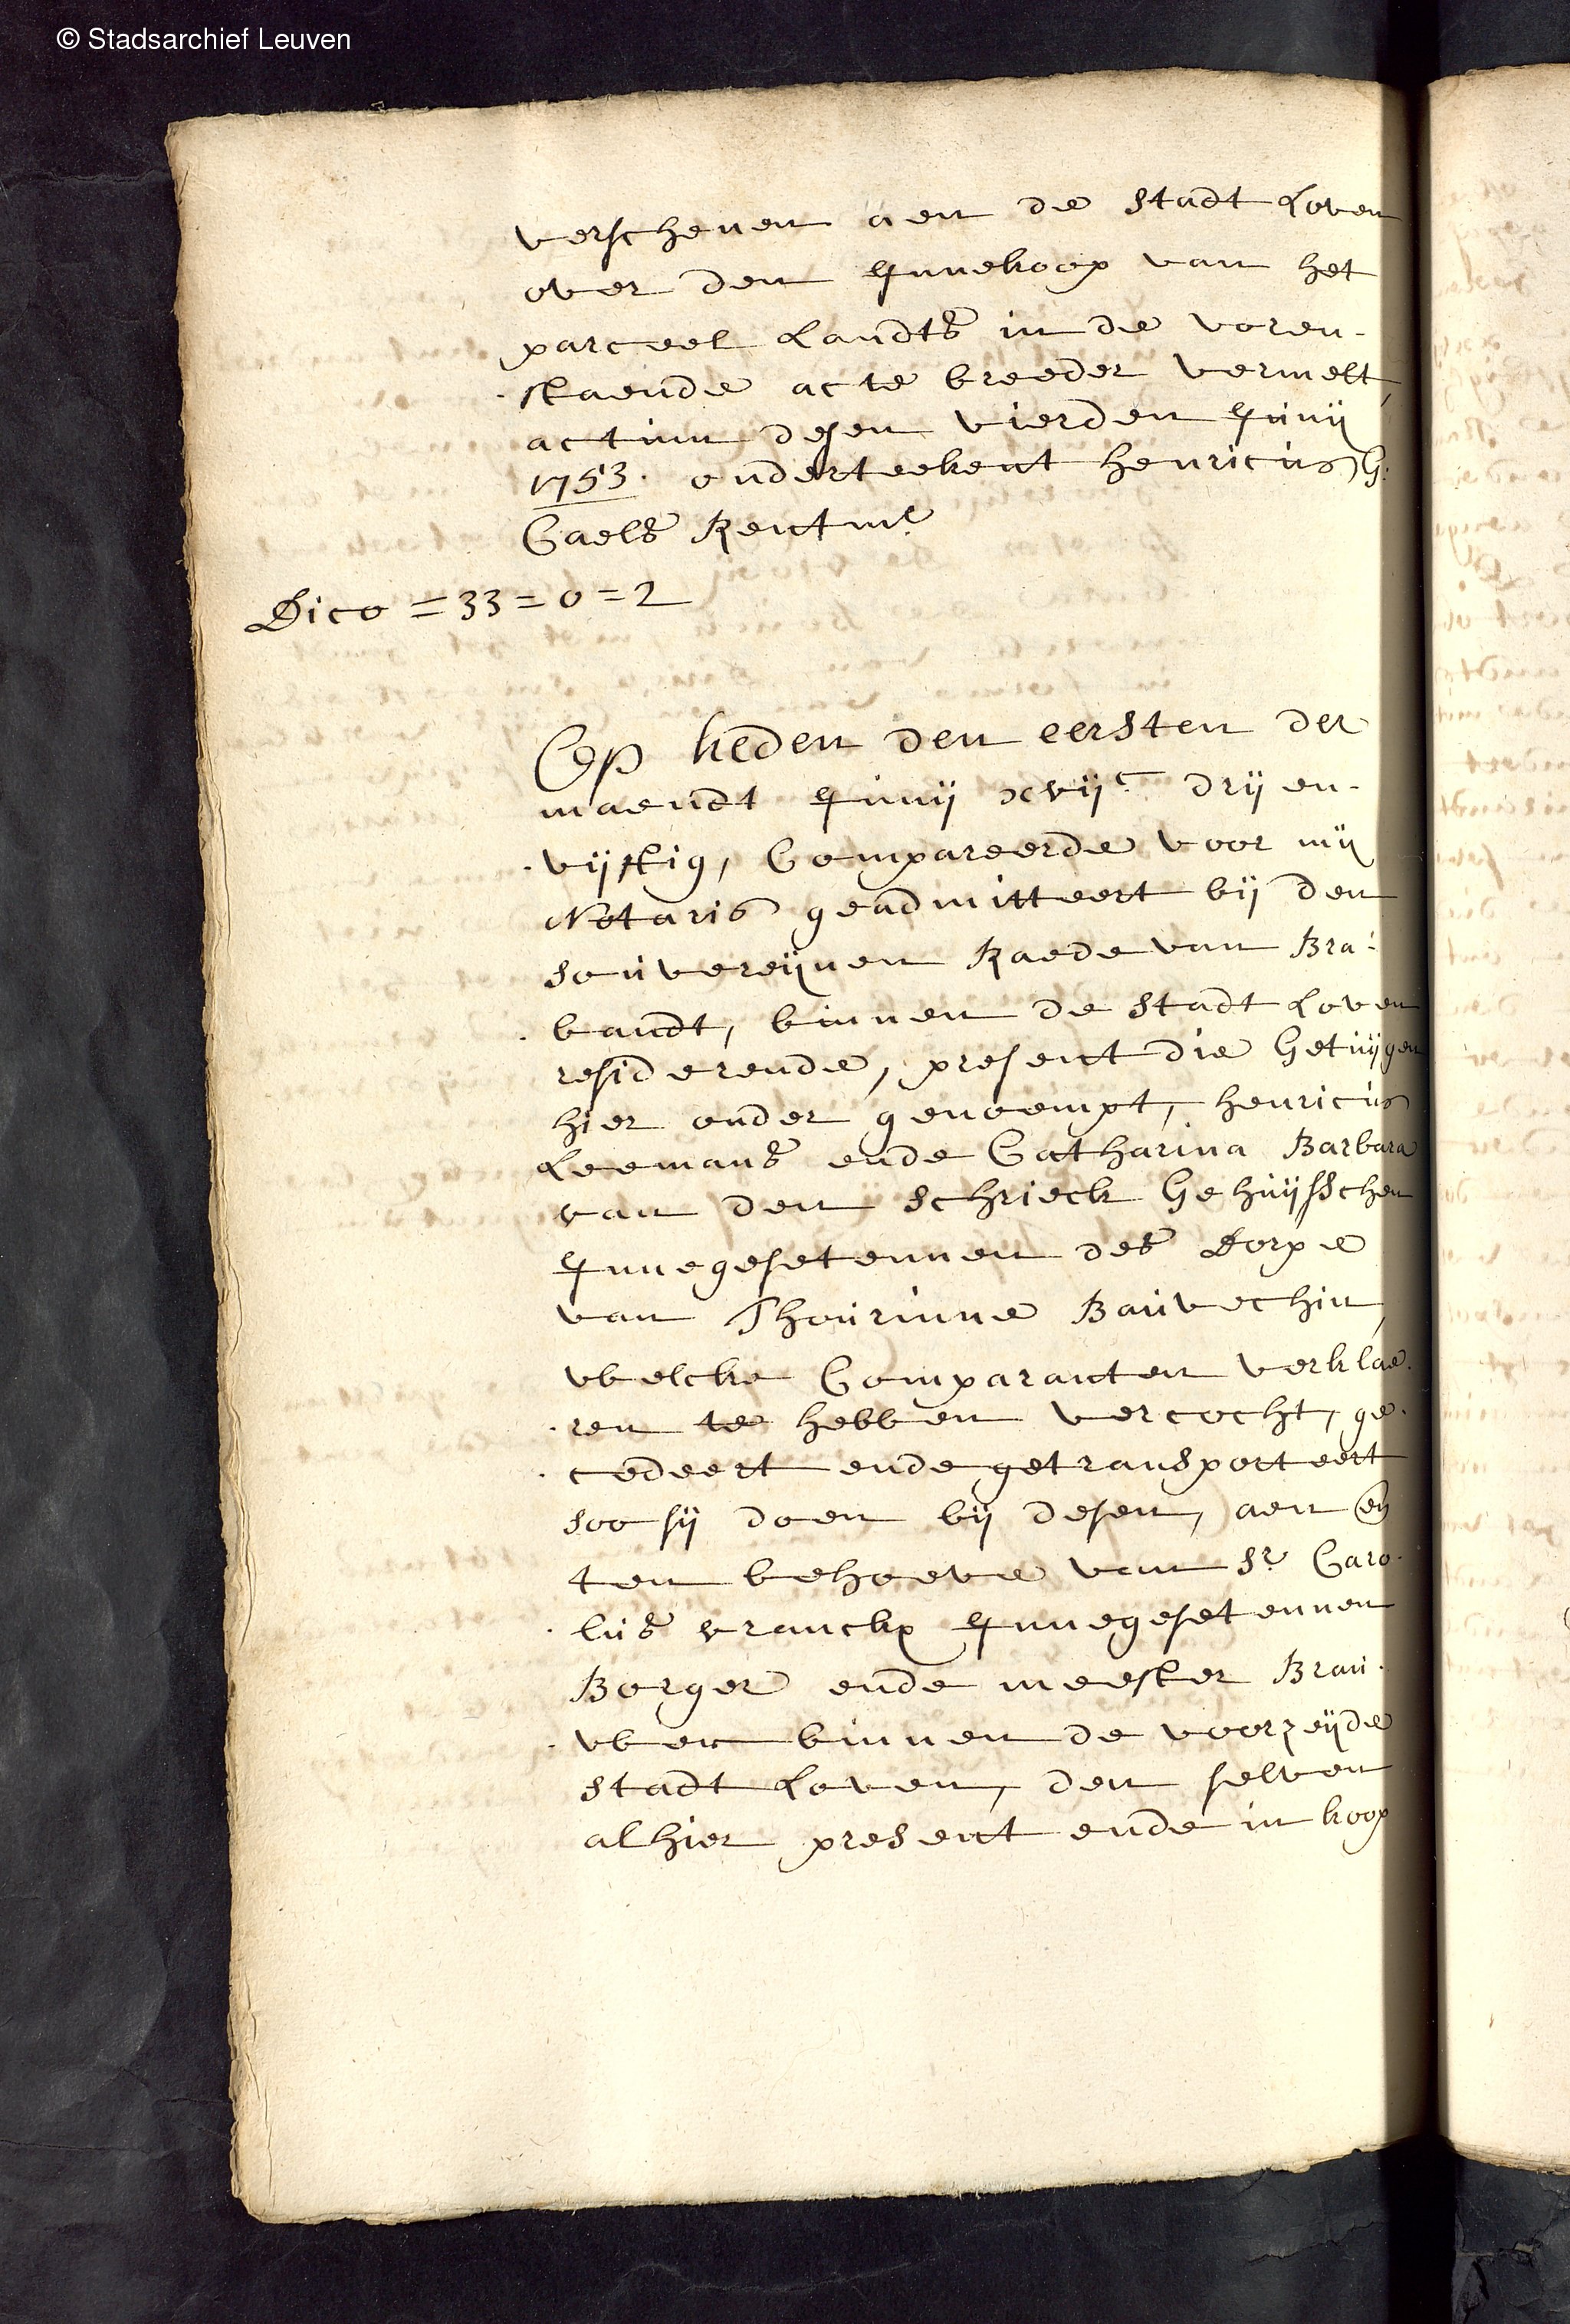 © Stadsarchief Leuven
verschenen aen de stadt Loven
over den Innekoop van het
parceel Landts in de voren-
-staende acte breeder vermelt,
actum desen vierden Junij
1753. onderteekent Henricus G:
Caels Rentmr
Dico = 33 = 0 = 2
Op heden den eersten der
maendt Junij xvijc drij en-
-vijftig, Compareerde voor mij
Notaris geadmitteert bij den
souvereijnen Raede van Bra-
-bandt, binnen de stadt Loven
residerende, present die Getuijgen
hier onder genoempt, Henricus
Leemans ende Catharina Barbara
van den Schrieck Gehuijsschen
Innegesetennen des Dorpe
van Thourinne Bauvechin,
welcke Comparanten verklae-
-ren te hebben vercocht, ge-
-cedeert ende getransporteert
soo sij doen bij desen, aen en
ten behoeve van Sr Caro-
-lus vranckx Innegesetennen
Borger ende meester Brau-
-wer binnen de voorzeijde
stadt Loven, den selven
alhier present ende in koop